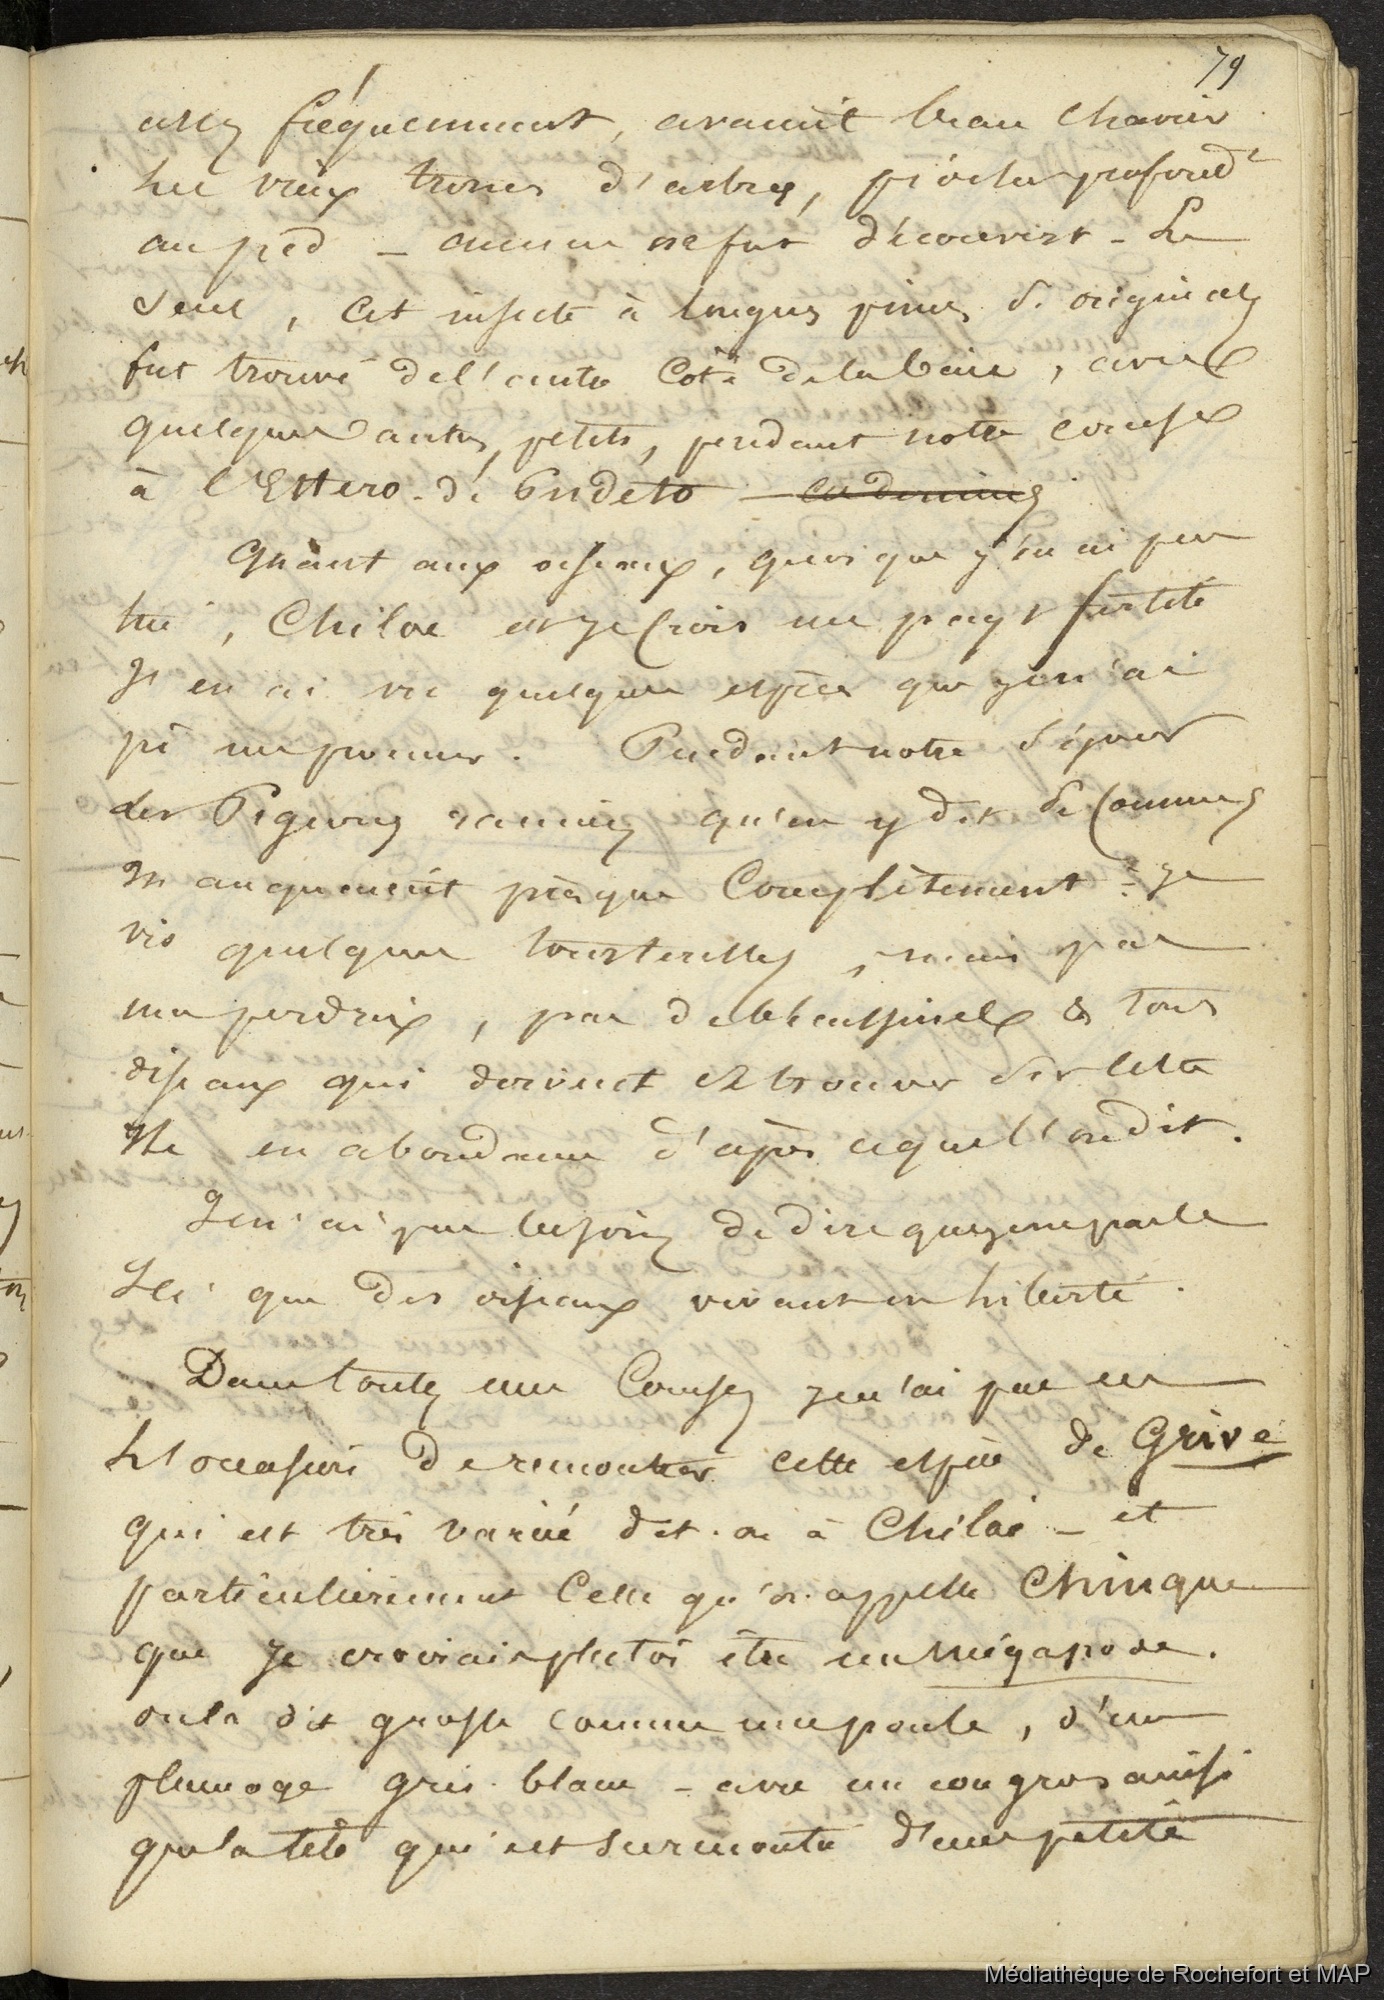 79
assez fréquemment, avaient beau chavirer
les vieux troncs d'arbres, piocher profondt
au pied _ aucun ne fut découvert _ Le
seul, cet insecte à longues pinces si original,
fut trouvé de l'autre Côté de la baie, avec
quelques autres, petits, pendant notre course
à l'Estero. de Pudeto
Quànt aux oiseaux, quoique j'en ai peu
tué, Chiloe est je Crois un pays fertile
J'en ai vu quelques espèces que je n'ai
pû me procurer. Pendant notre séjour
les Pigeons ramiers qu'on y dit si Communs
manquaient presque Complètement _ Je
vis quelques tourterelles, mais pas
une perdrix, pas de bécassines & tous
oiseaux qui doivent se trouver sur cette
Ile en abondance d'après ce que l'on dit.
Je n'ai pas besoin de dire que je ne parle
Ici que des oiseaux vivant en liberté.
Dans toutes mes Courses je n'ai pas eu
L'occasion de rencontrer cette espèce de Grive
qui est très variée dit-on à Chiloé _ et
particulièrement Celle qu'on appelle Chinque
que je croirais plutôt être un mégapode.
on la dit grosse comme une poule, d'un
plumage gris-blanc _ avec un cou gros ainsi
que la tête qui est surmontée d'une petite
Médiathèque de Rochefort et MAP